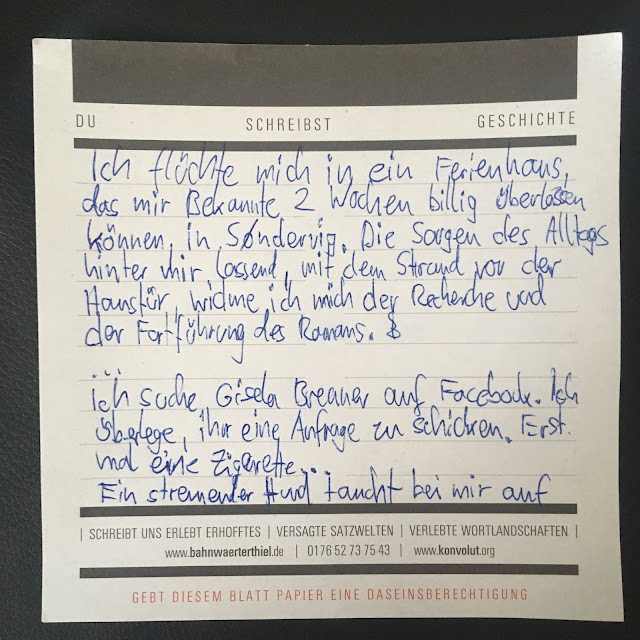 DU SCHREIBST GESCHICHTE
Ich flüchte mich in ein Ferienhaus,
das mir Bekannte 2 Wochen billig überlassen
können, in Søndervig. Die Sorgen des Alltags
hinter mir lassend, mit dem Strand vor der
Haustür, widme ich mich der Recherche und
der Fortführung des Romans.
...
Ich suche Gisela auf Facebook. Ich
überlege, ihr eine Anfrage zu schicken. Erst
mal eine Zigarette...
Ein streunender Hund taucht bei mir auf
| SCHREIBT UNS ERLEBT ERHOFFTES | VERSAGTE SATZWELTEN | VERLEBTE WORTLANDSCHAFTEN |
www.bahnwaerterthiel.de | 0176 52 73 75 43 | www.konvolut.org
GEBT DIESEM BLATT PAPIER EINE DASEINSBERECHTIGUNG